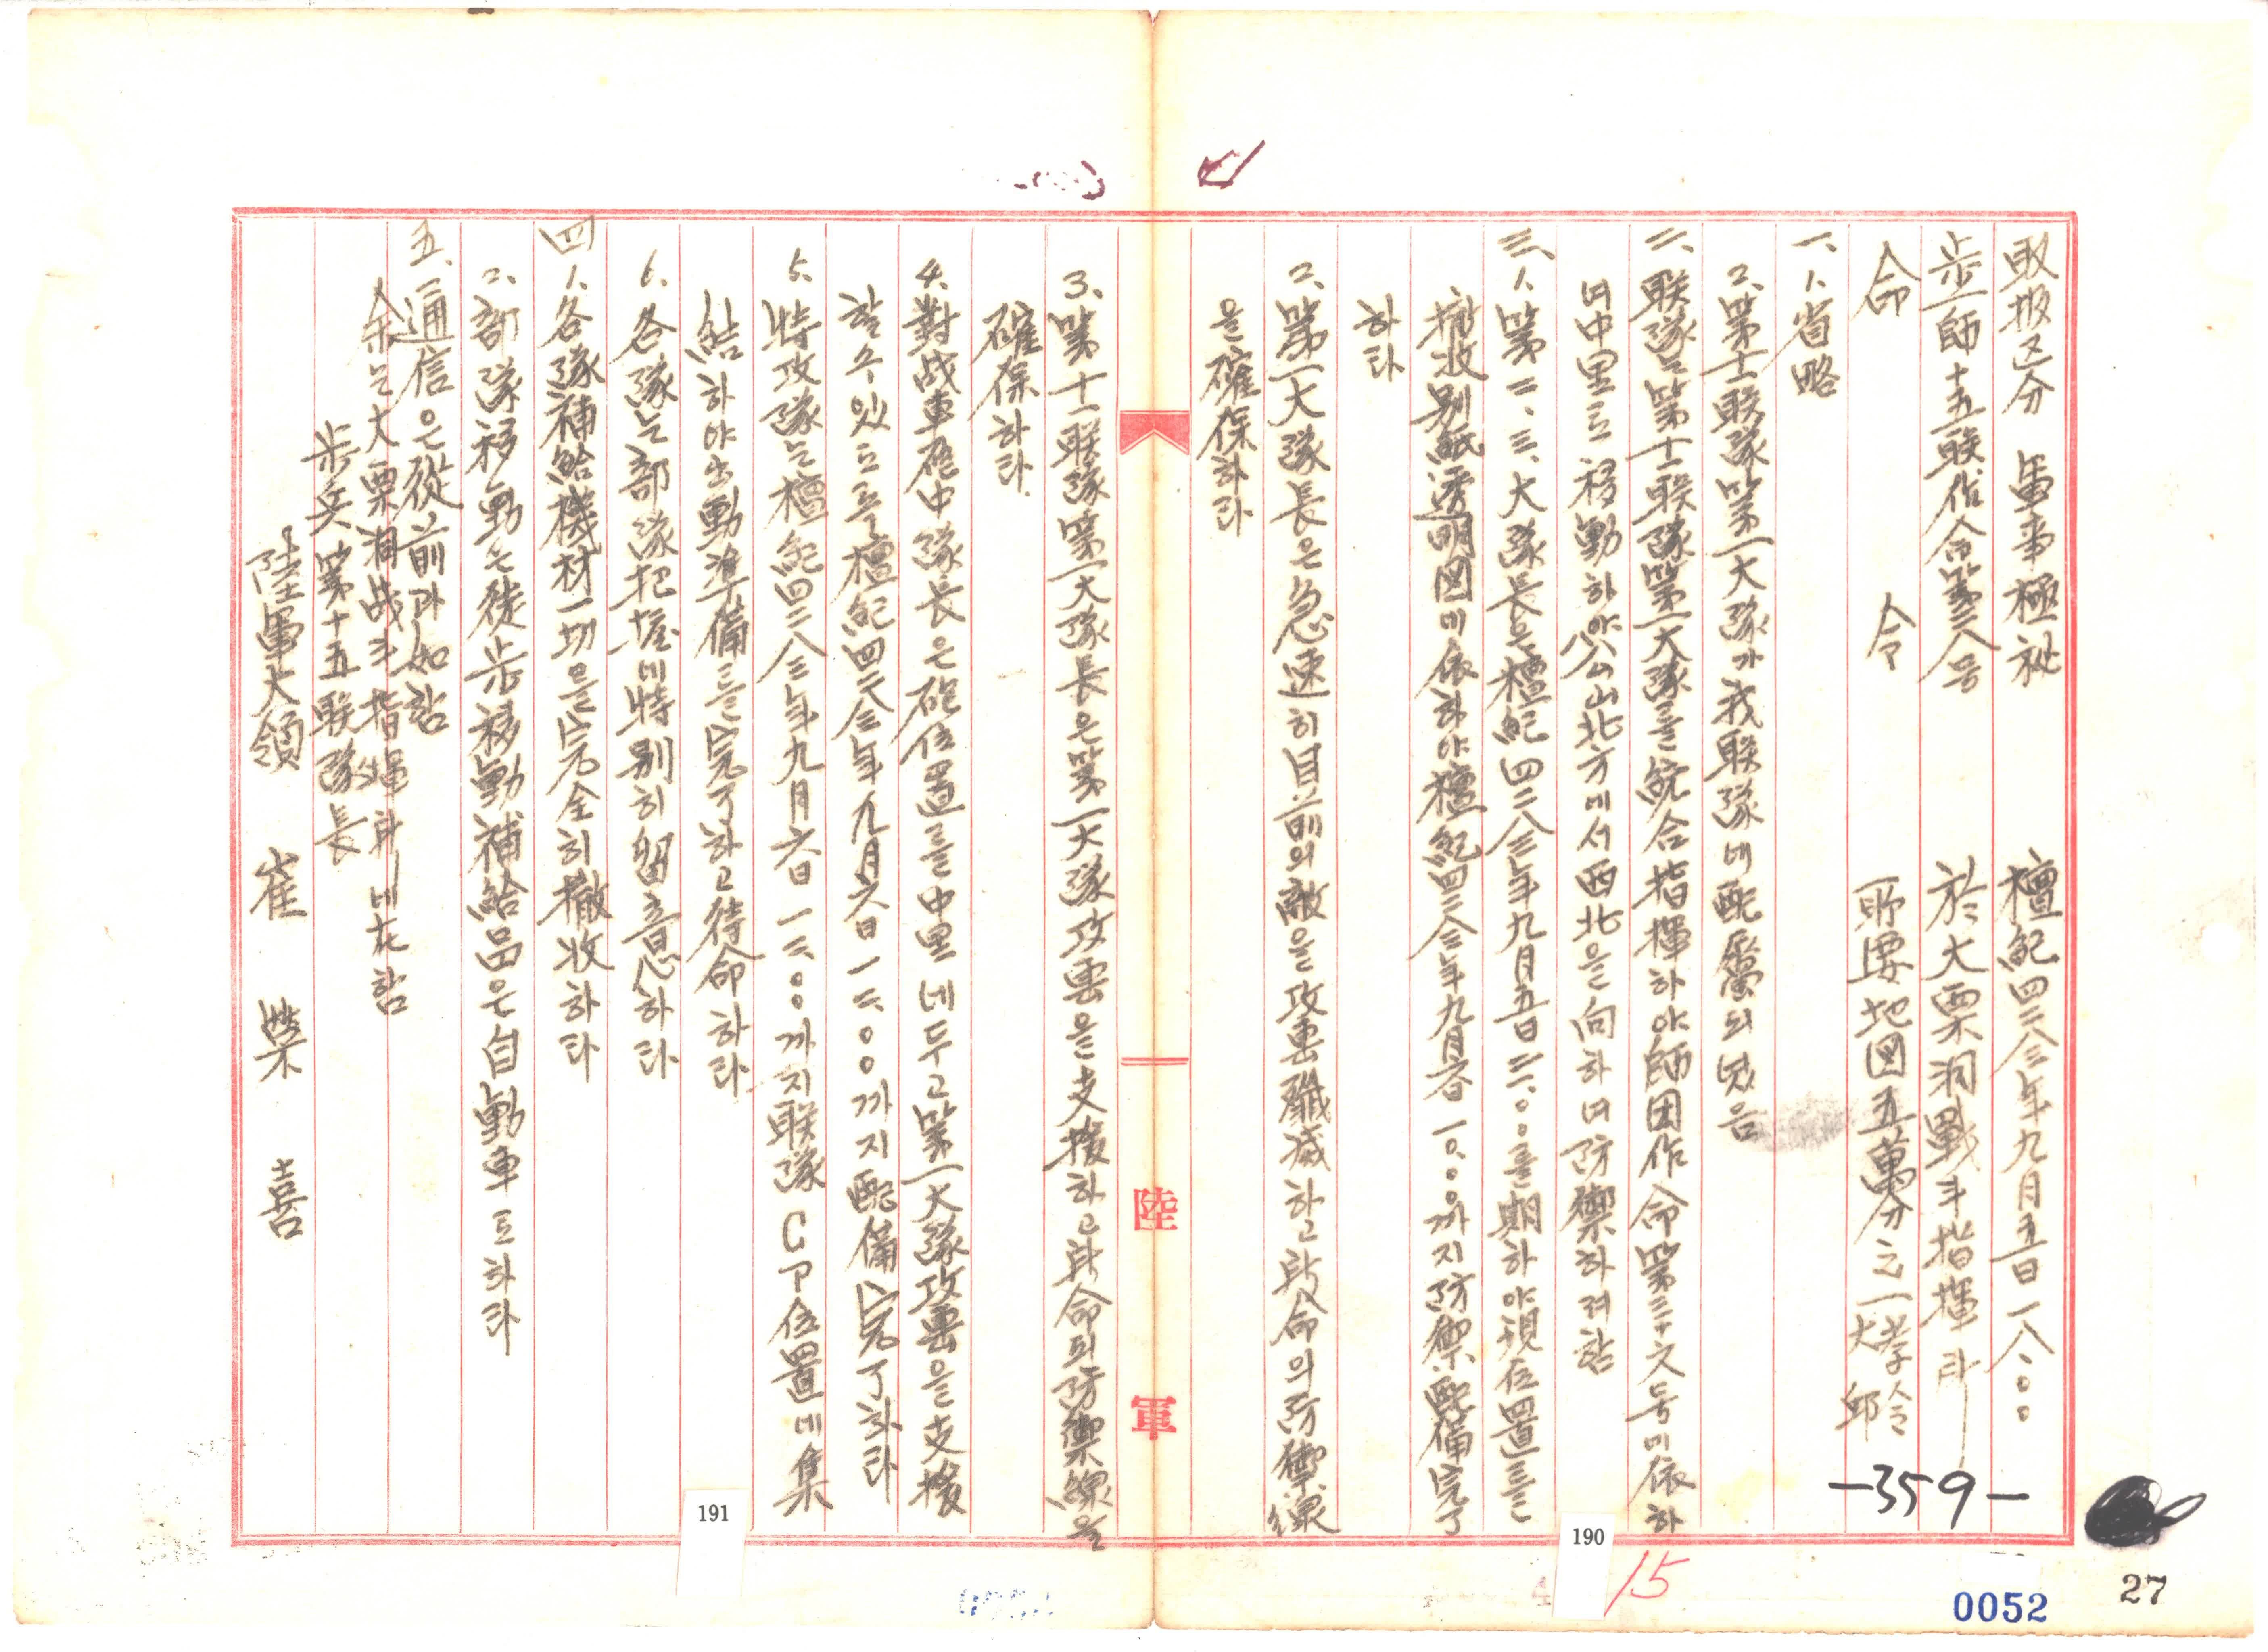 取扱区分 軍事極祕 檀紀四二八三年九月五日一八·〇〇
歩一師十五联作命第三八号 於大栗洞戰斗指揮所
命令 所要地図五萬分之一 孝令 大邱
一、1、省略
2、第十一联隊第一大隊가我联隊에配屬되였음
二、联隊는第十一联隊第一大隊를統合指揮하야師団作命第三十六号에依하
여中里로移動하야八公山北方에서西北을向하여防禦하려함
三、1、第二、三、大隊長은檀紀四二八三年九月五日二二·〇〇를期하야現位置를
撤收別紙透明図에依하야檀紀四二八三年九月六日一〇·〇〇까지防禦配備完了
하라
2、第一大隊長은急速히目前의敵을攻擊殲滅하고與命의防禦線
을確保하라
3、第十一联隊第一大隊長은第一大隊攻擊을支援하고與命되防禦線을
確保하라
4、對战車砲中隊長은砲位置를中里에두고第一大隊攻擊을支援
할수있도록檀紀四二八三年九月六日一二·〇〇까지配備完了하라
5、特攻隊는檀紀四二八三年九月六日一二·〇〇까지联隊CP位置에集
結하야出動準備를完了하고待命하라
6、各隊는部隊把握에特別히留意하라
四1、各隊補給機材一切을完全히撤收하라
2、部隊移動은徒歩移動補給品은自動車로하라
五、通信은從前과如함
余는大栗洞战斗指揮所에在함
歩兵第十五联隊長
陸軍大領 崔榮喜
陸軍
-359-
190
191
15
0052
27